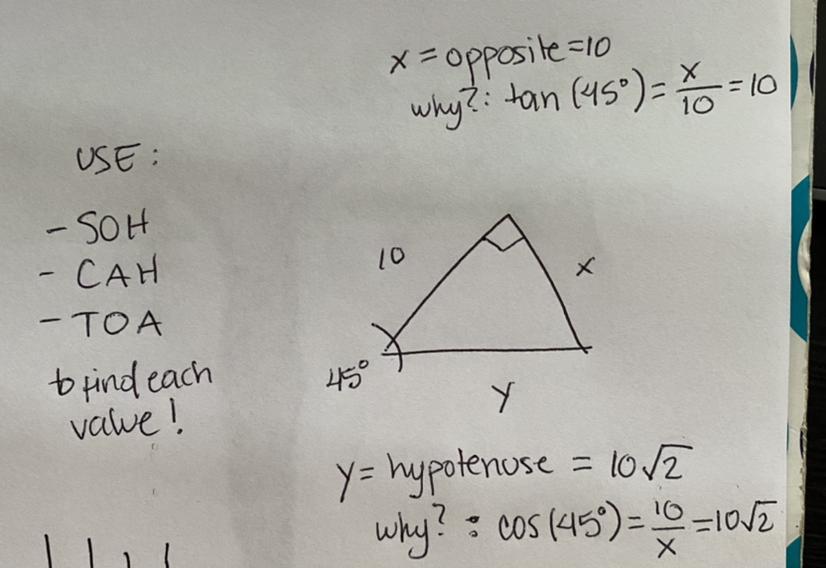 x = opposite = 10
why?: tan (45°) = x/10 = 10
USE:
- SOH
- CAH
- TOA
to find each
value!
10
x
45°
y
y = hypotenuse = 10√2
why?: cos (45°) = 10/x = 10√2